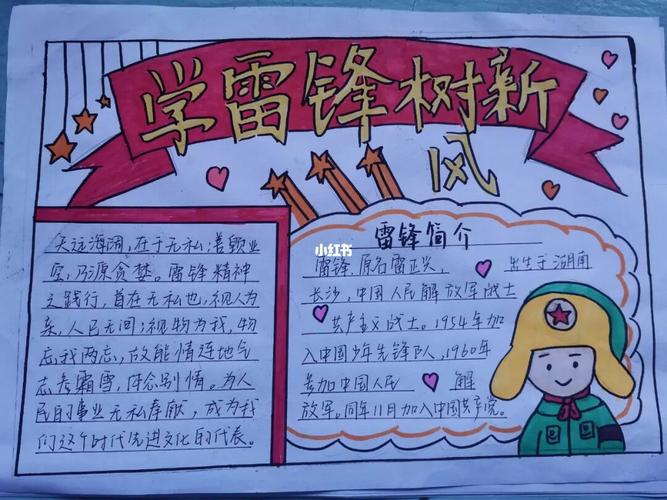 学雷锋树新
风
小红书
天远海阔,在于无私;善颐业
空,乃源贪婪。雷锋精神
之践行,首在无私也,视人为
亲,人民无间;视物为我,物
忘我两忘,故能情连地
志考霜雪,别情。为人
民的事业无私奉献,成为我
们这个时代先进文化的代表。
雷锋简介
雷锋,原名雷正兴, 出生于湖南
长沙,中国人民解放军战士
共产主义战士。1954年加
入中国少年先锋队,1960年
参加中国人民 解
放军,同年11月加入中国共产党。